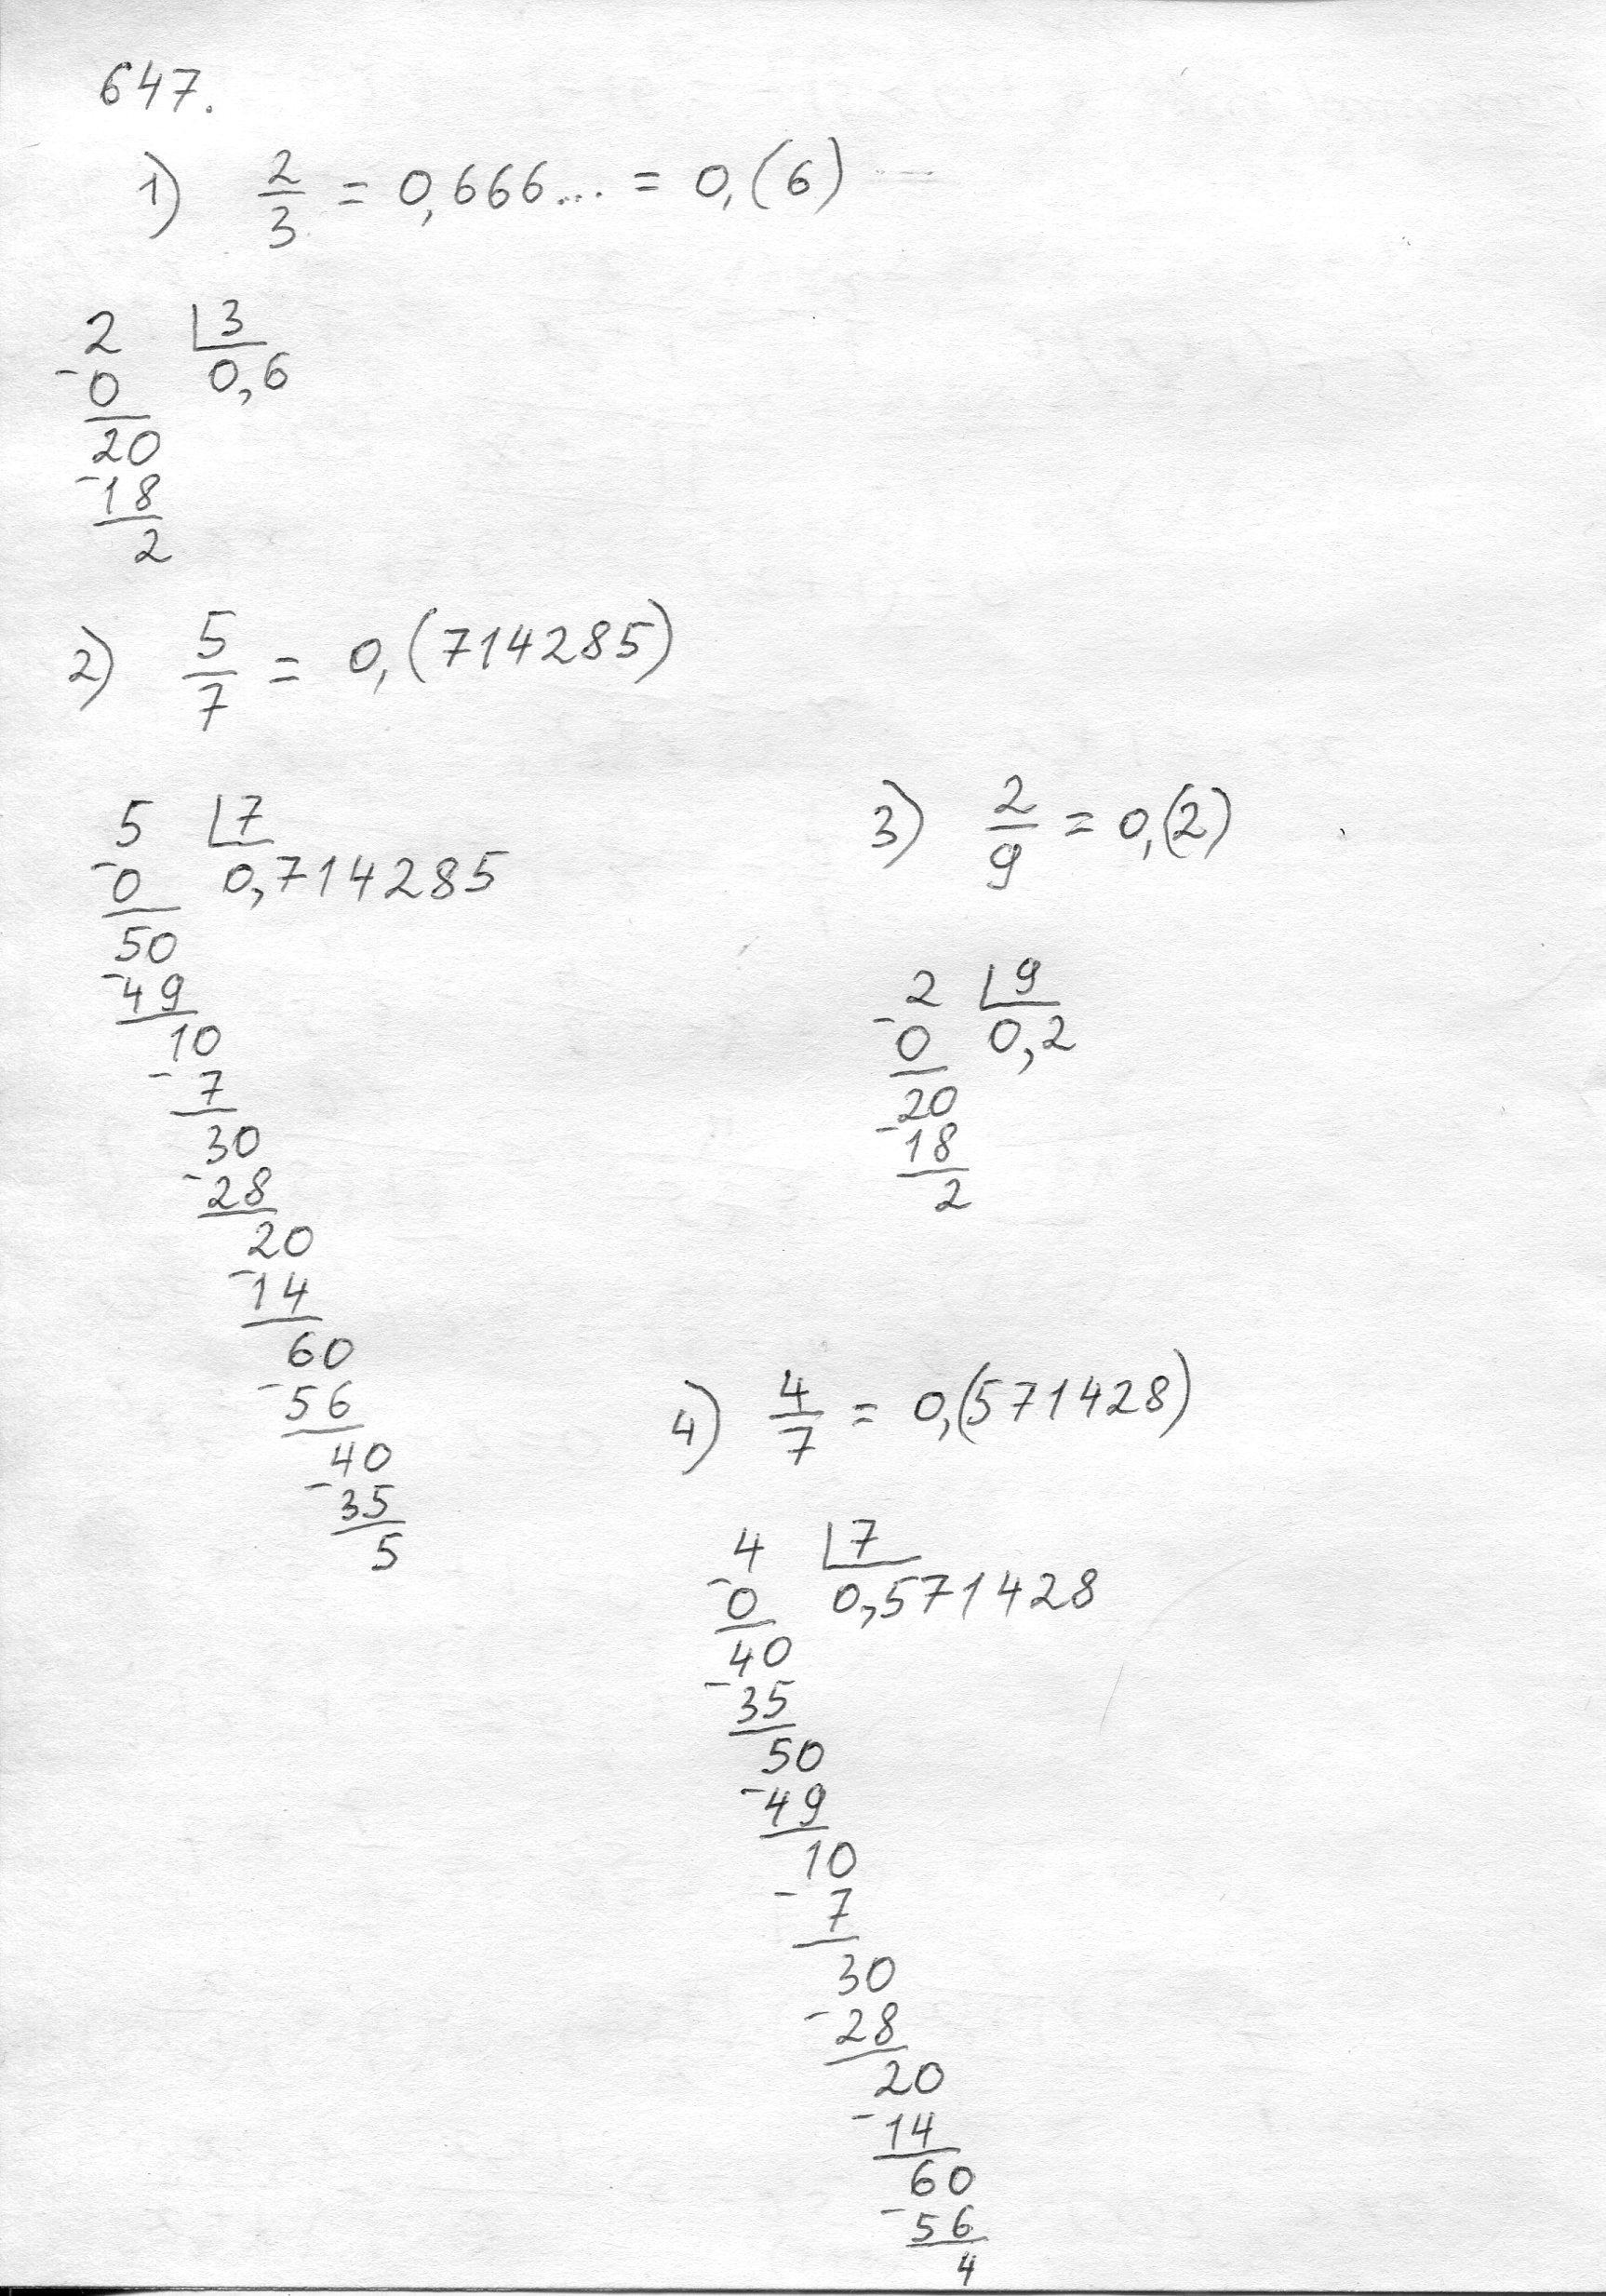 647.
1) 2/3 = 0,666... = 0,(6)
2 |3
-0 0,6
20
-18
2
2) 5/7 = 0,(714285)
5 |7
-0 0,714285
50
-49
10
-7
30
-28
20
-14
60
-56
40
-35
5
3) 2/9 = 0,(2)
2 |9
-0 0,2
20
-18
2
4) 4/7 = 0,(571428)
4 |7
-0 0,571428
40
-35
50
-49
10
-7
30
-28
20
-14
60
-56
4